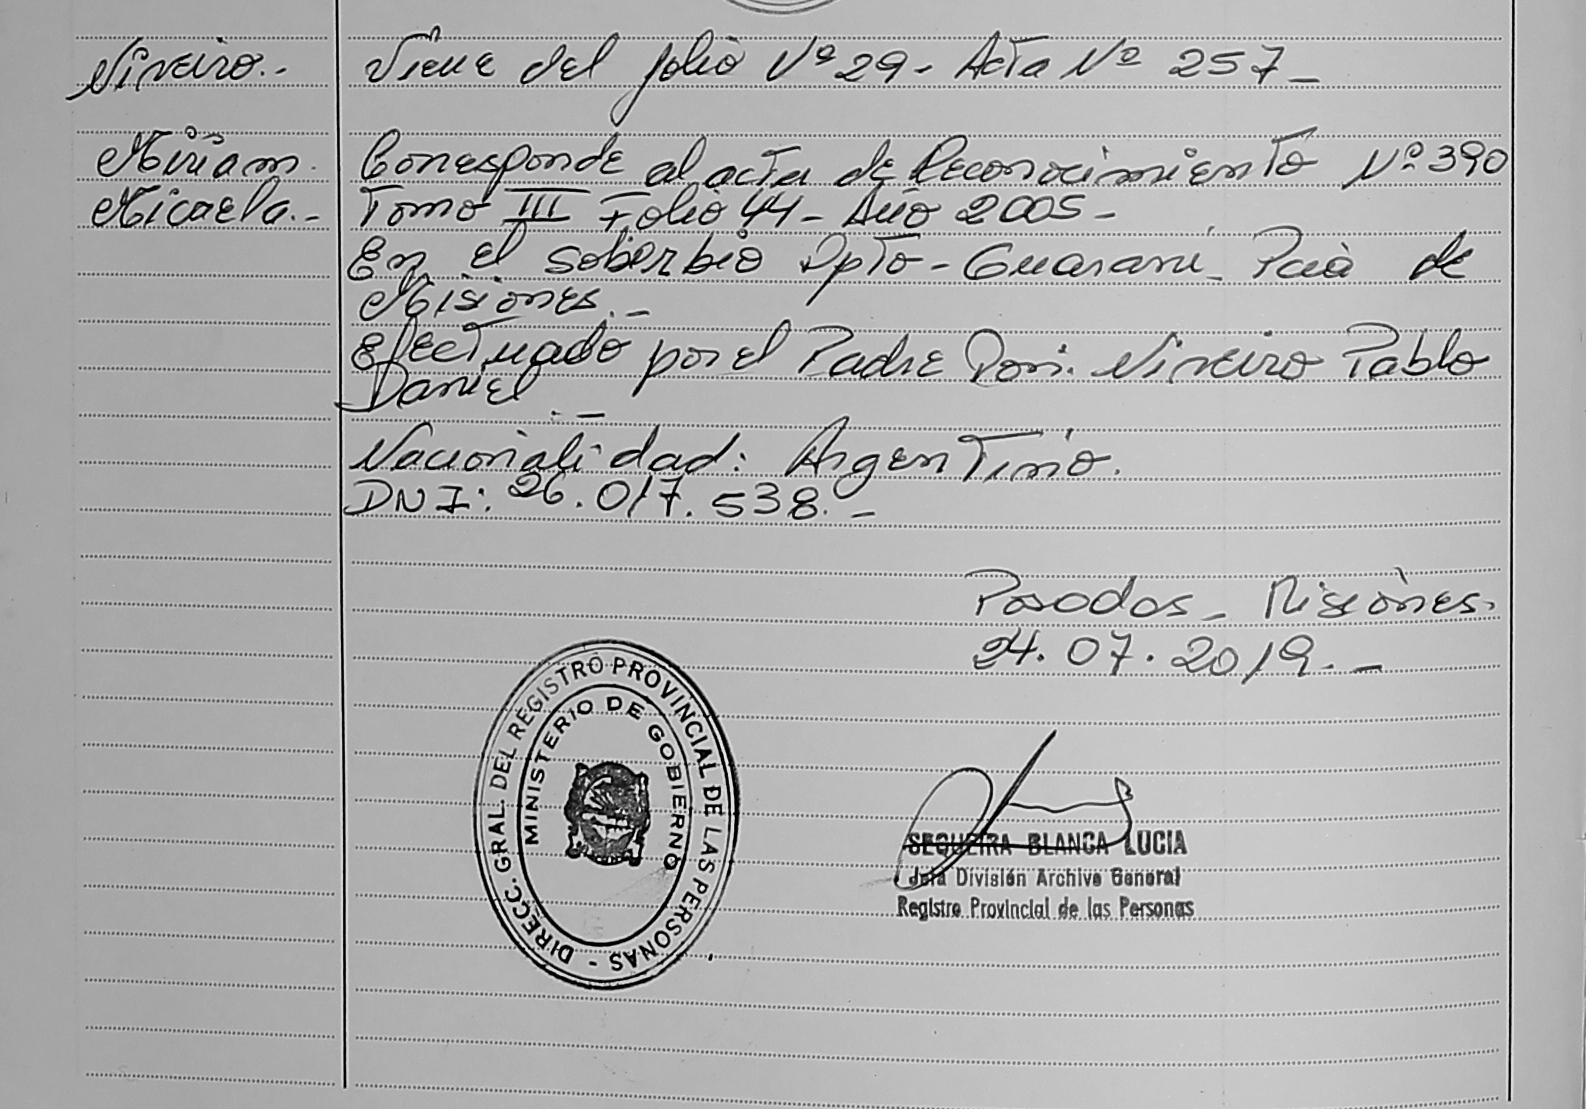 Nireiro.-
Viene del folio Nº 29 - Acta Nº 257 -
Miriam
Micaela.-
Corresponde al acta de Reconocimiento Nº 390
Tomo III Folio 44 - Año 2005 -
En el soberbio Dpto - Guaraní Pcia de
Misiones.-
Efectuado por el Padre Don: Nireiro Pablo
Daniel.-
Nacionalidad: Argentino.
DNI: 26.017.538.-
Posadas - Misiones.
24.07.2019.-
DIRECC. GRAL. DEL REGISTRO PROVINCIAL DE LAS PERSONAS -
MINISTERIO DE GOBIERNO
SEQUEIRA BLANCA LUCIA
Jefa División Archivo General
Registro Provincial de las Personas